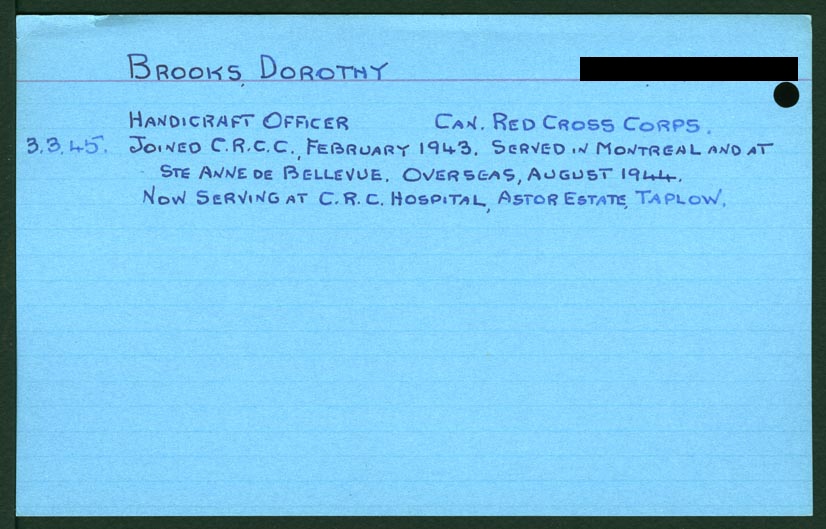 BROOKS, DOROTHY
HANDICRAFT OFFICER CAN. RED CROSS CORPS.
3.3.45. JOINED C.R.C.C., FEBRUARY 1943. SERVED IN MONTREAL AND AT
STE ANNE DE BELLEVUE. OVERSEAS, AUGUST 1944.
NOW SERVING AT C.R.C. HOSPITAL, ASTOR ESTATE, TAPLOW.